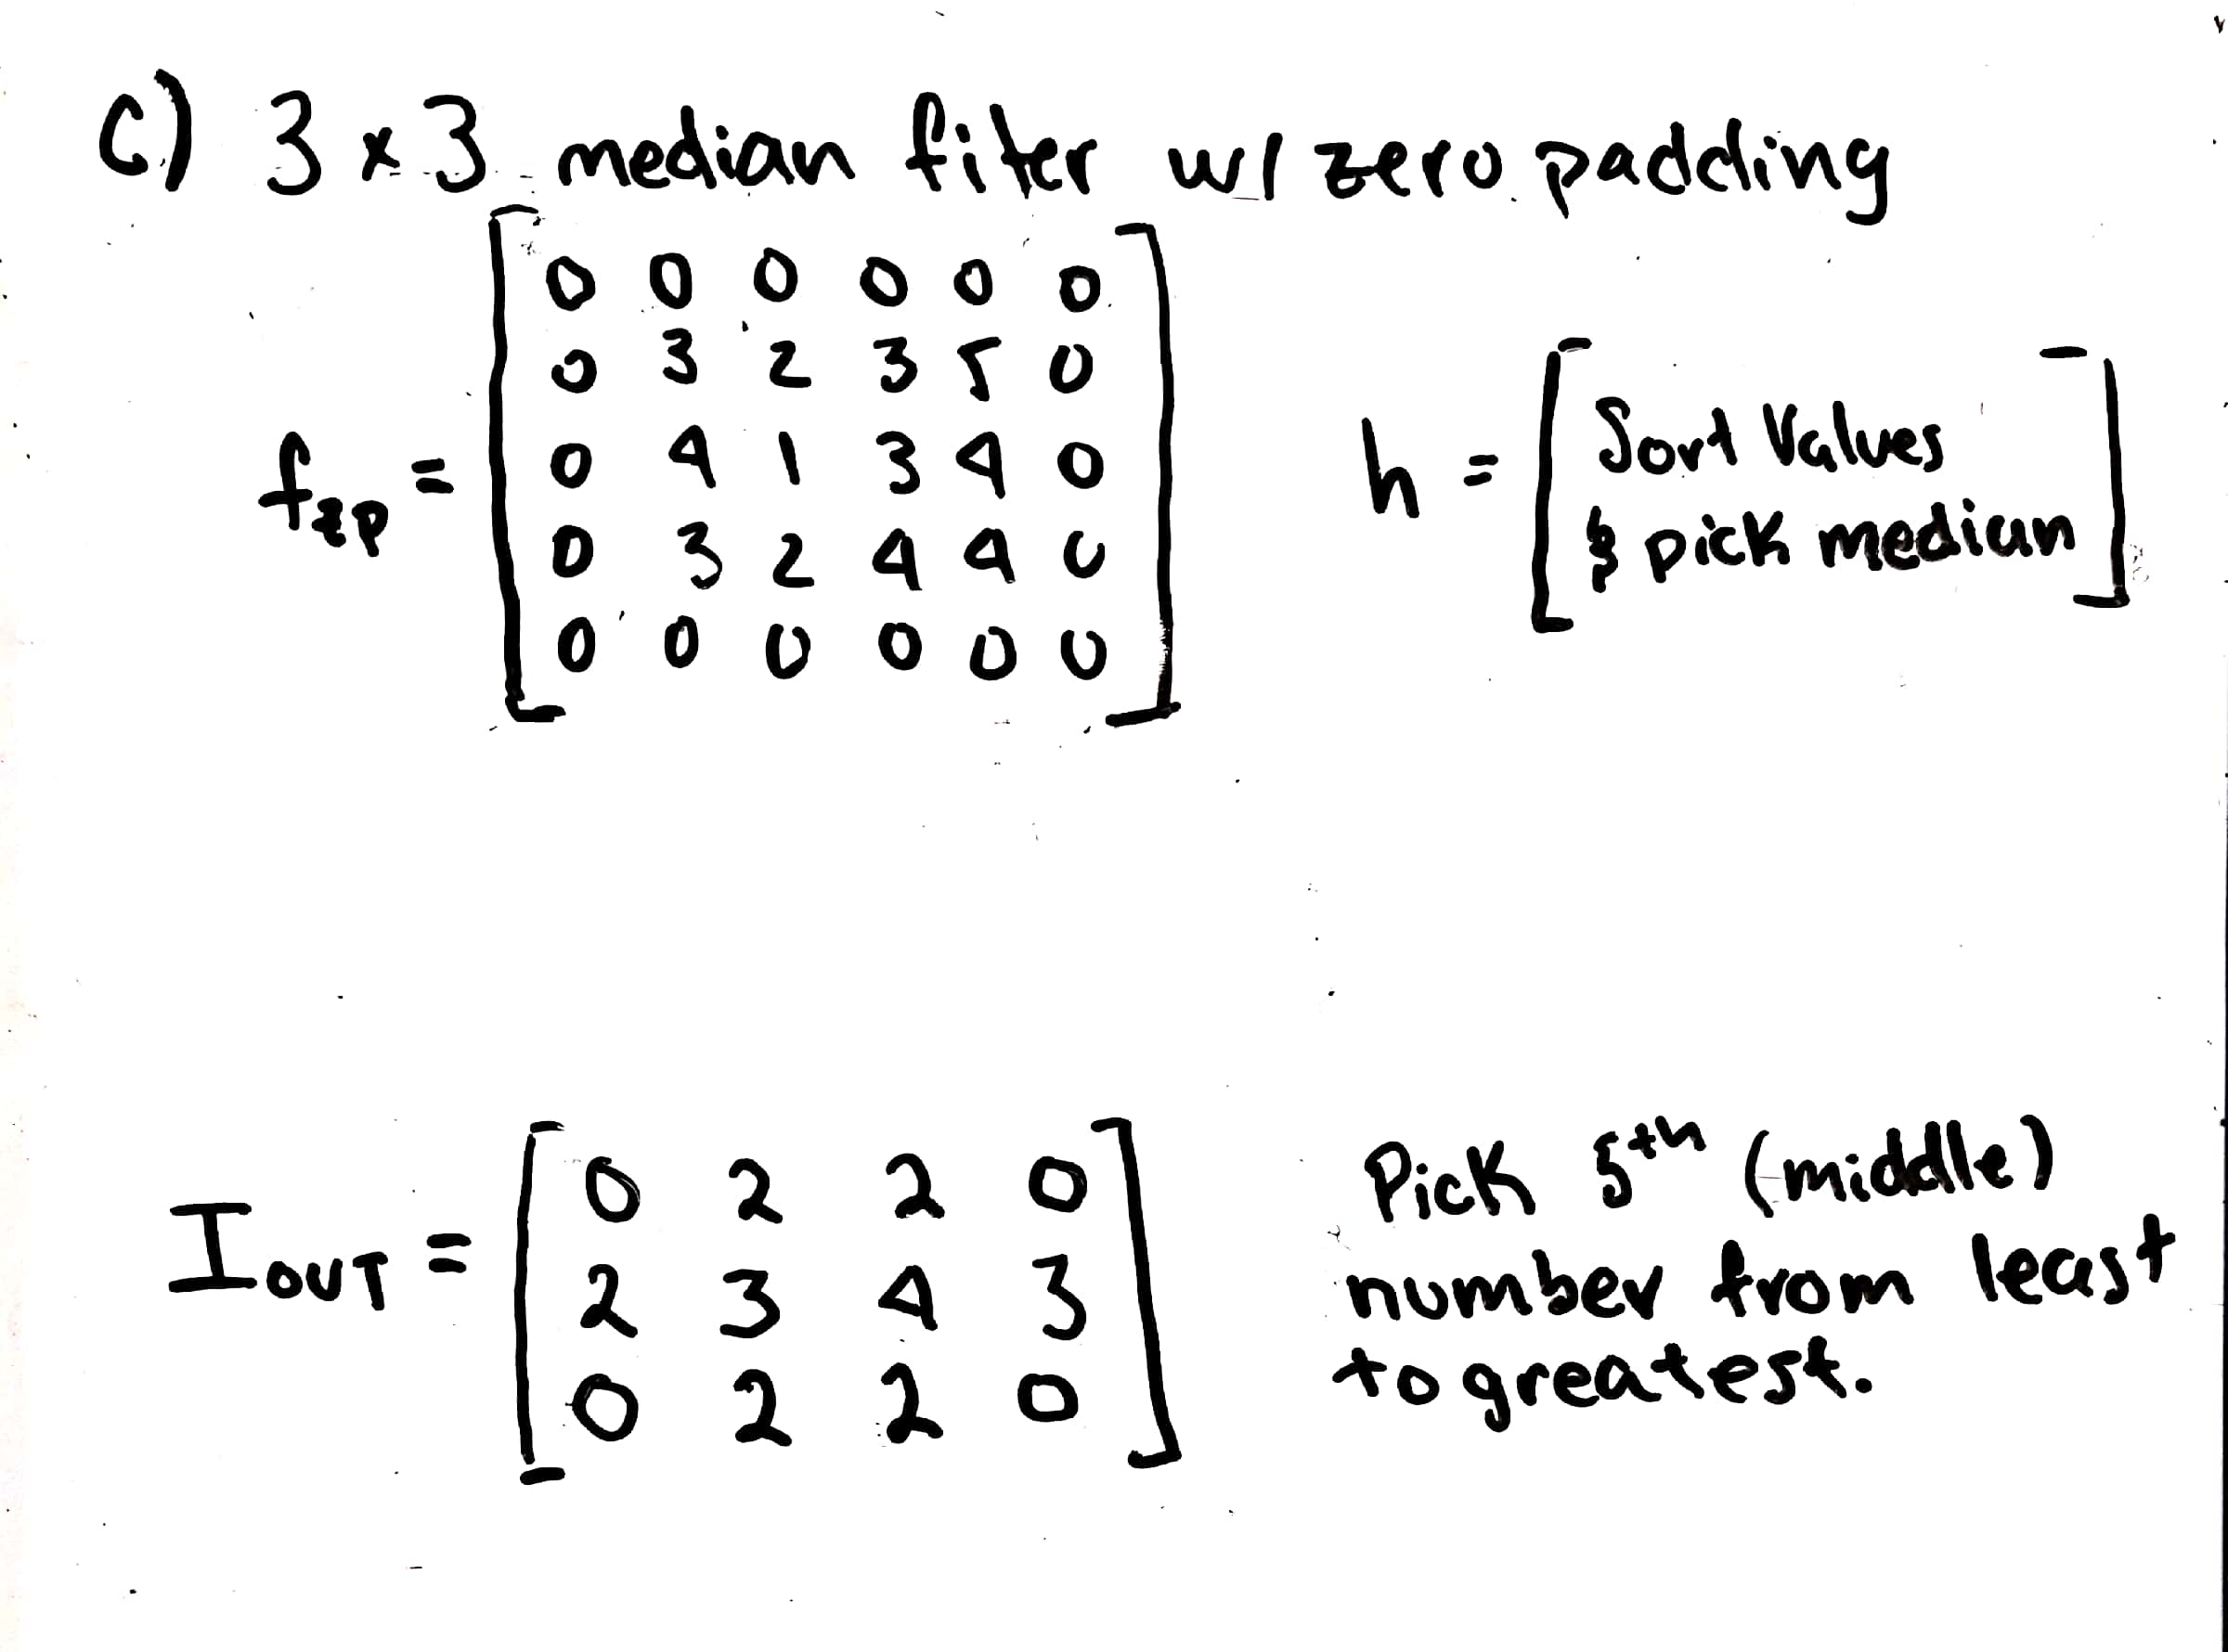 C) 3 x 3 median filter w/ zero padding
0 0 0 0 0 0
0 3 2 3 5 0
fzp = 0 4 1 3 4 0
0 3 2 4 4 0
0 0 0 0 0 0
h = [ Sort Values
& pick median ]
0 2 2 0
IOUT = 2 3 4 3
0 2 2 0
Pick 5th (middle)
number from least
to greatest.